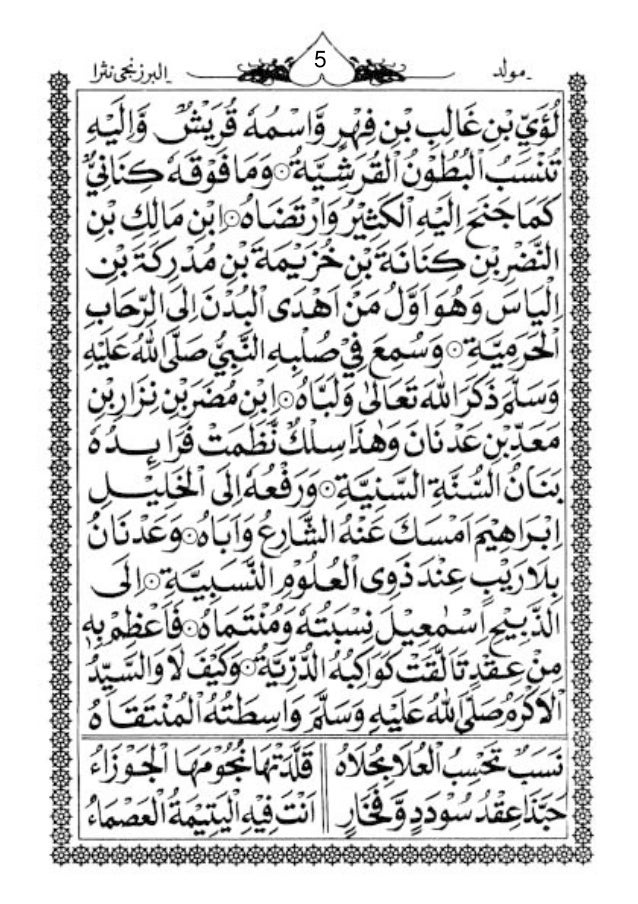 مولد
5
البرزنجى نثرا
لُؤَيِّ بْنِ غَالِبِ بْنِ فِهْرٍ وَّاسْمُهُ قُرَيْشٌ وَّاِلَيْهِ
تُنْسَبُ الْبُطُوْنُ الْقُرَشِيَّةُ ۞ وَمَا فَوْقَهُ كِنَانِيٌّ
كَمَا جَنَحَ اِلَيْهِ الْكَثِيْرُ وَارْتَضَاهُ ۞ اِبْنِ مَالِكِ بْنِ
النَّضْرِ بْنِ كِنَانَةَ بْنِ خُزَيْمَةَ بْنِ مُدْرِكَةَ بْنِ
اِلْيَاسَ وَهُوَ اَوَّلُ مَنْ اَهْدَى الْبُدْنَ اِلَى الرِّحَابِ
الْحَرَمِيَّةِ ۞ وَسُمِعَ فِيْ صُلْبِهِ النَّبِيُّ صَلَّى اللهُ عَلَيْهِ
وَسَلَّمَ ذَكَرَ اللهَ تَعَالٰى وَلَبَّاهُ ۞ اِبْنِ مُضَرَ بْنِ نِزَارِ بْنِ
مَعَدِّ بْنِ عَدْنَانَ وَهٰذَا سِلْكٌ نَّظَمَتْ فَرَائِدُهُ
بَنَانُ السُّنَّةِ السَّنِيَّةِ ۞ وَرَفْعُهُ اِلَى الْخَلِيْلِ
اِبْرَاهِيْمَ اَمْسَكَ عَنْهُ الشَّارِعُ وَاَبَاهُ ۞ وَعَدْنَانُ
بِلَا رَيْبٍ عِنْدَ ذَوِى الْعُلُوْمِ النَّسَبِيَّةِ ۞ اِلَى
الذَّبِيْحِ اِسْمٰعِيْلَ نِسْبَتُهُ وَمُنْتَمَاهُ ۞ فَاَعْظِمْ بِهِ
مِنْ عِقْدٍ تَاَلَّقَتْ كَوَاكِبُهُ الدُّرِّيَّةُ ۞ وَكَيْفَ لَا وَالسَّيِّدُ
الْاَكْرَمُ صَلَّى اللهُ عَلَيْهِ وَسَلَّمَ وَاسِطَتُهُ الْمُنْتَقَاهُ
نَسَبٌ تَحْسِبُ الْعُلَا بِحُلَاهُ قَلَّدَتْهَا نُجُوْمَهَا الْجَوْزَاءُ
حَبَّذَا عِقْدُ سُوْدَدٍ وَّفَخَارٍ اَنْتَ فِيْهِ الْيَتِيْمَةُ الْعَصْمَاءُ